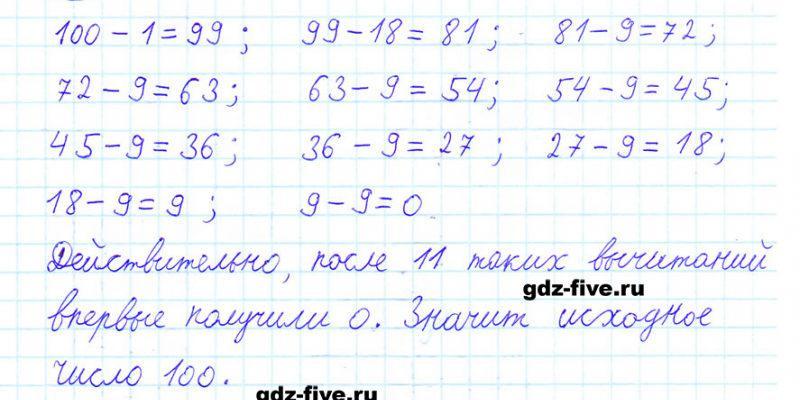 100 - 1 = 99 ; 99 - 18 = 81 ; 81 - 9 = 72 ;
72 - 9 = 63 ; 63 - 9 = 54 ; 54 - 9 = 45 ;
45 - 9 = 36 ; 36 - 9 = 27 ; 27 - 9 = 18 ;
18 - 9 = 9 ; 9 - 9 = 0
Действительно, после 11 таких вычитаний
gdz-five.ru
впервые получили 0. Значит исходное
число 100.
gdz-five.ru